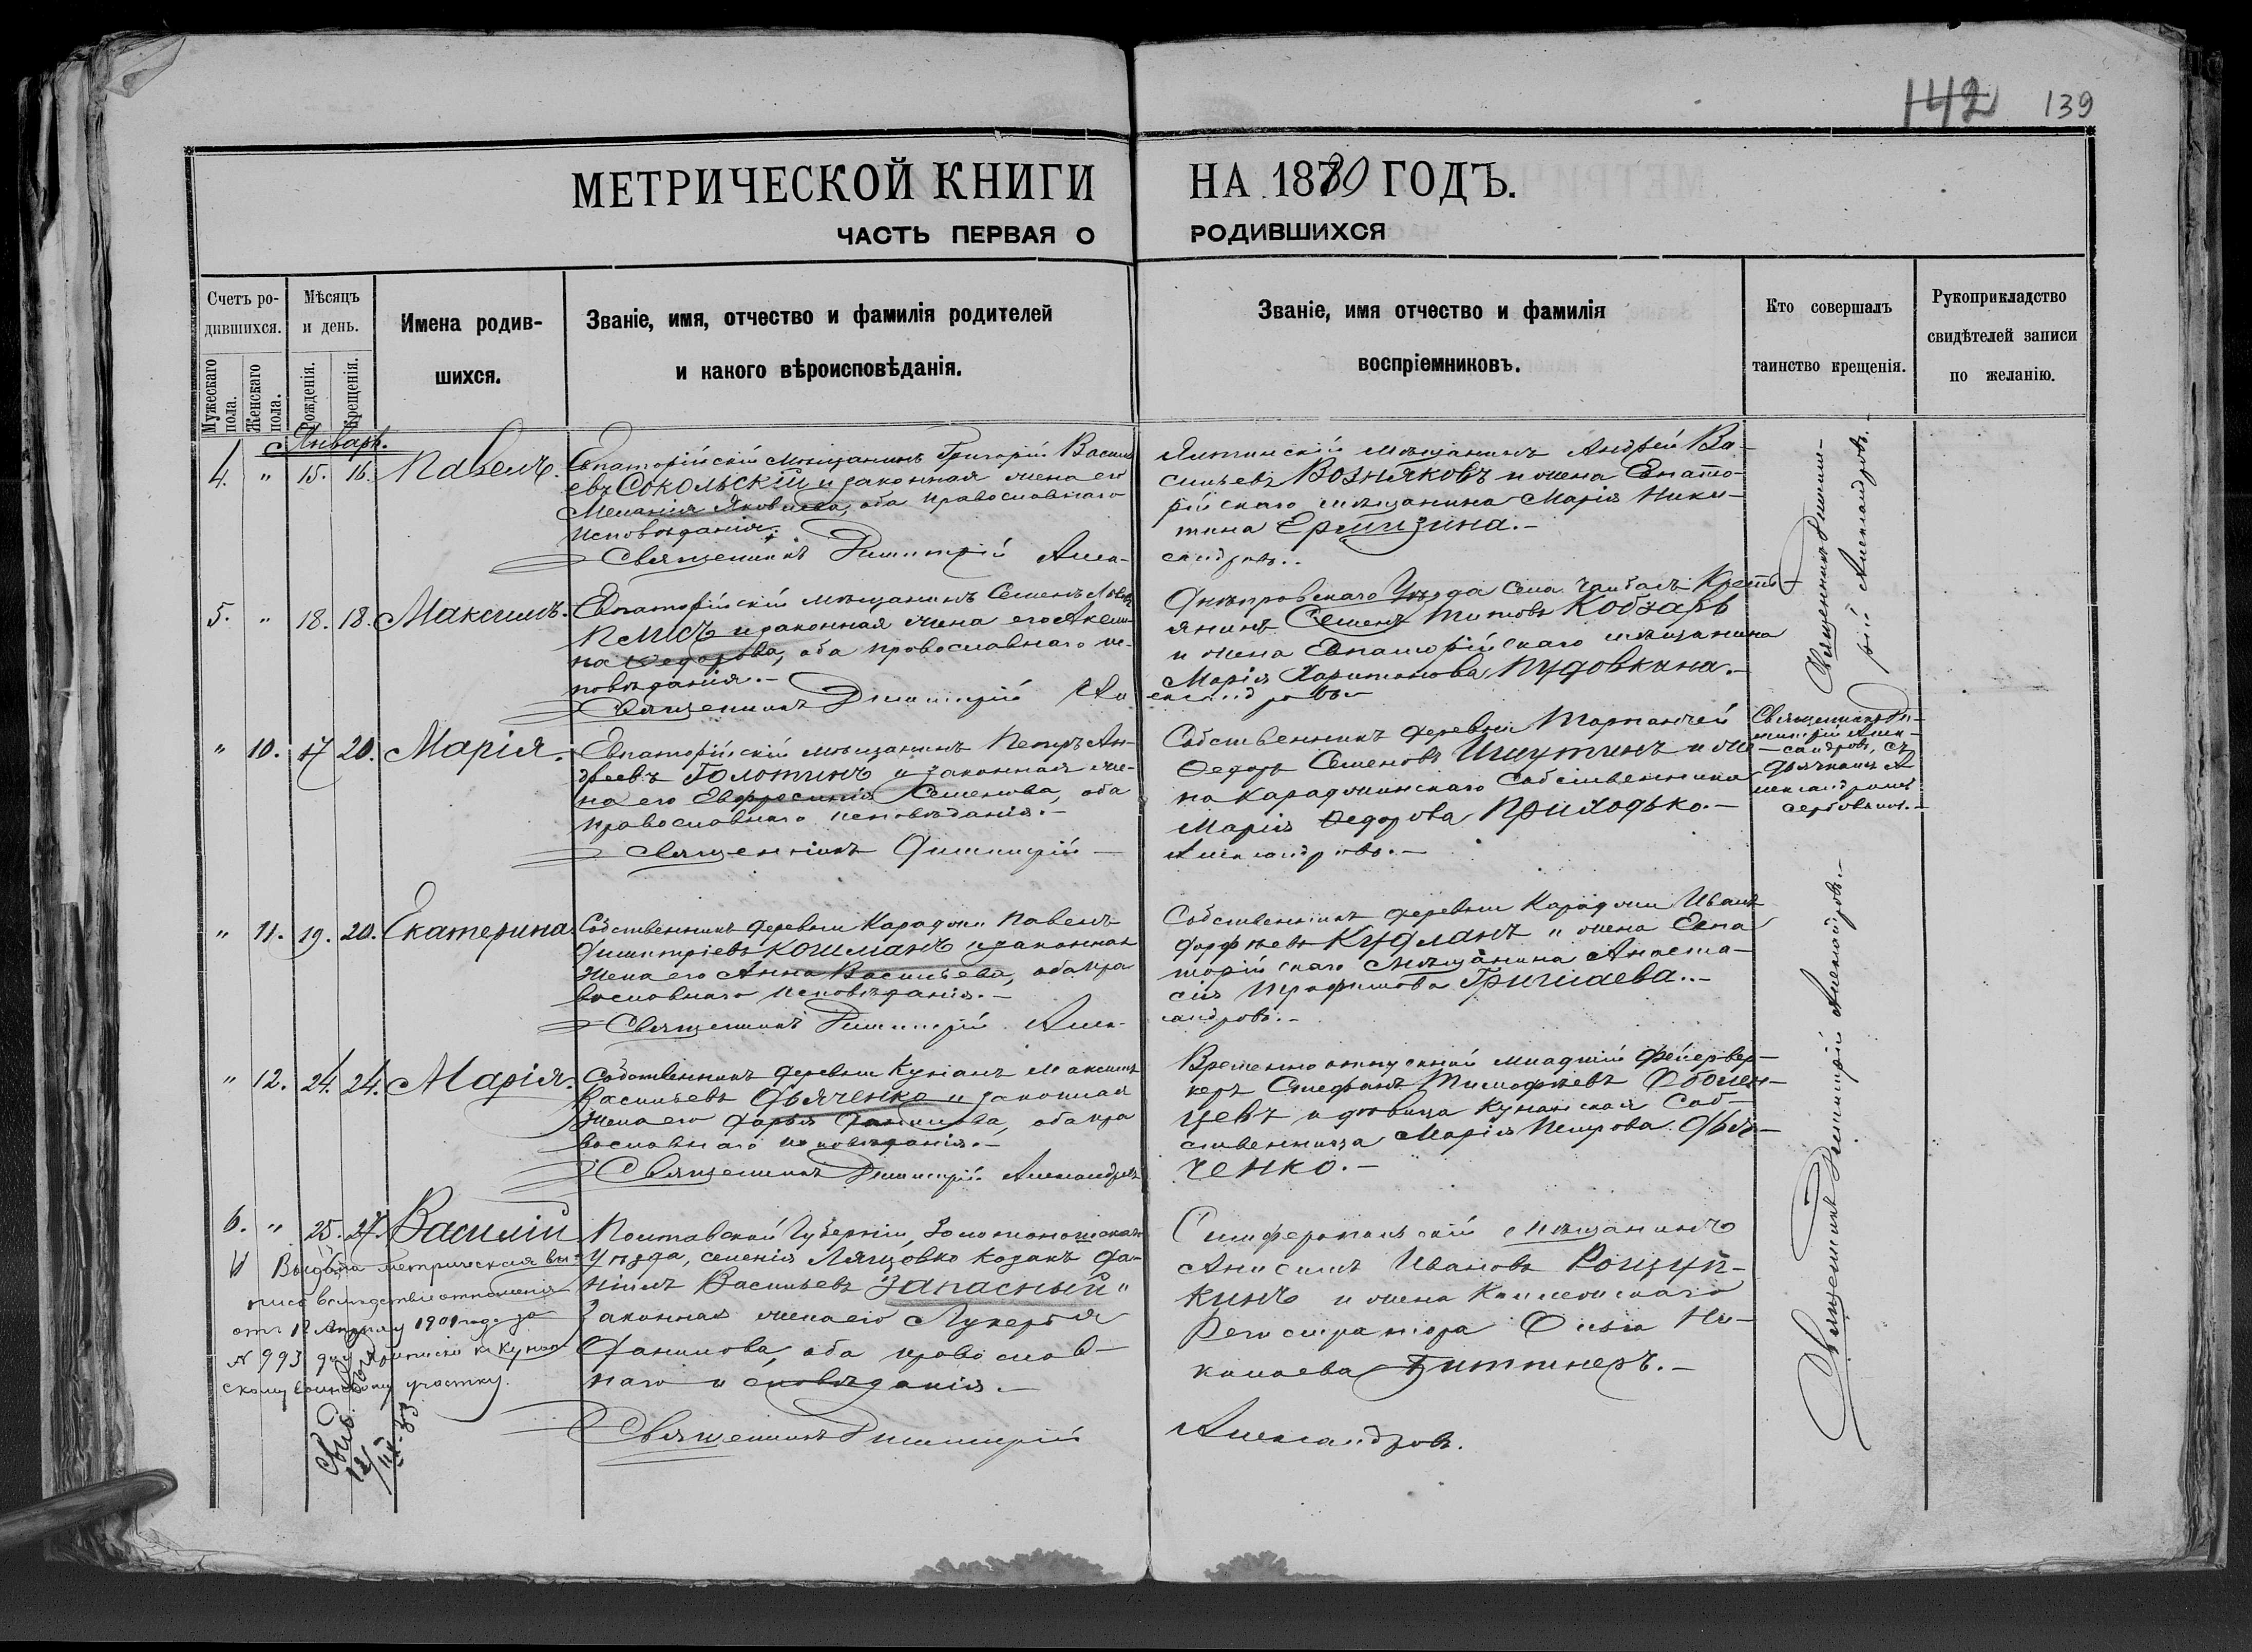 142 139
МЕТРИЧЕСКОЙ КНИГИ НА 1880 ГОДЪ.
ЧАСТЬ ПЕРВАЯ О РОДИВШИХСЯ
Счетъ ро-
дившихся.
Мужескаго пола.
Женскаго пола.
Мѣсяцъ
и день.
Рожденія.
Крещенія.
Имена родив-
шихся.
Званіе, имя, отчество и фамилія родителей
и какого вѣроисповѣданія.
Званіе, имя отчество и фамилія
воспріемниковъ.
Кто совершалъ
таинство крещенія.
Рукоприкладство
свидѣтелей записи
по желанію.
Январь.
4. " 15. 16. Павелъ.
Евпаторійскій мѣщанинъ Григорій Василь
евъ Сокольскій и законная жена его
Меланія Яковлева, оба православнаго
исповѣданія.
Священникъ Димитрій Алек-
Ялтинскій мѣщанинъ Андрей Ва-
сильевъ Возняковъ и жена Евпато-
рійскаго мѣщанина Марія Ники-
тина
сандровъ.
Священникъ Димит-
рій Александровъ.
5. " 18. 18. Максимъ.
Евпаторійскій мѣщанинъ Семенъ
и законная жена его
на Федорова, оба православнаго ис-
повѣданія.-
Священникъ Димитрій Ал
Днѣпровскаго Уѣзда села Крест-
янинъ Семенъ Титовъ Кобзарь
и жена Евпаторійскаго мѣщанина
Марія Харитонова Пудовкина.-
ександровъ
" 10. 17 20. Марія.
Евпаторійскій мѣщанинъ Петръ Ан-
дреевъ Голотинъ и законная же-
на его Евфросинія Семенова, оба
православнаго исповѣданія.-
Священникъ Димитрій
Собственникъ деревни Тарпанчей
Федоръ Семеновъ Ишутинъ и же-
на Караджинскаго собственника
Марія Федорова Приходько.-
Александровъ.-
Священникъ Ди-
митрій Алек-
сандровъ, съ
дьячкомъ А
лександромъ
Сербовымъ.-
" 11. 19. 20. Екатерина
Собственникъ деревни Караджи Павелъ
Димитріевъ Кошманъ и законная
жена его Анна Васильева, оба пра
вославнаго исповѣданія.-
Священникъ Димитрій Алек-
Собственникъ деревни Караджи Иванъ
и жена Евпа
торійскаго мѣщанина Анаста-
сія Трофимова
сандровъ.-
" 12. 24. 24. Марія.
Собственникъ деревни Кунанъ Максимъ
Васильевъ Дьяченко и законная
жена его Дарья Данилова, оба пра
вославнаго исповѣданія.-
Священникъ Димитрій Александровъ
Временно отпускной младшій фейервер-
керъ Стефанъ Тимофѣевъ
цевъ и дѣвица Кунанская соб-
ственница Марія Петрова Дья-
ченко.-
Священникъ Димитрій Александровъ.-
6. " 25. 27. Василій
Полтавской Губерніи, Золотоношскаго
Уѣзда, селенія Лящовка козакъ Да-
ніилъ Васильевъ Запасный и
законная жена его Лукерья
Данилова, оба православ-
наго исповѣданія.-
Священникъ Димитрій
Симферопольскій мѣщанинъ
Анисимъ Ивановъ
кинъ и жена Коллежскаго
Регистратора Ольга Ни-
колаева Биттнеръ.-
Александровъ.
Выдана метрическая вы-
пись вслѣдствіе отношенія
отъ 12 Апрѣля 1901 года за
N 993 для приписки к Кунан-
скому воинскому участку.